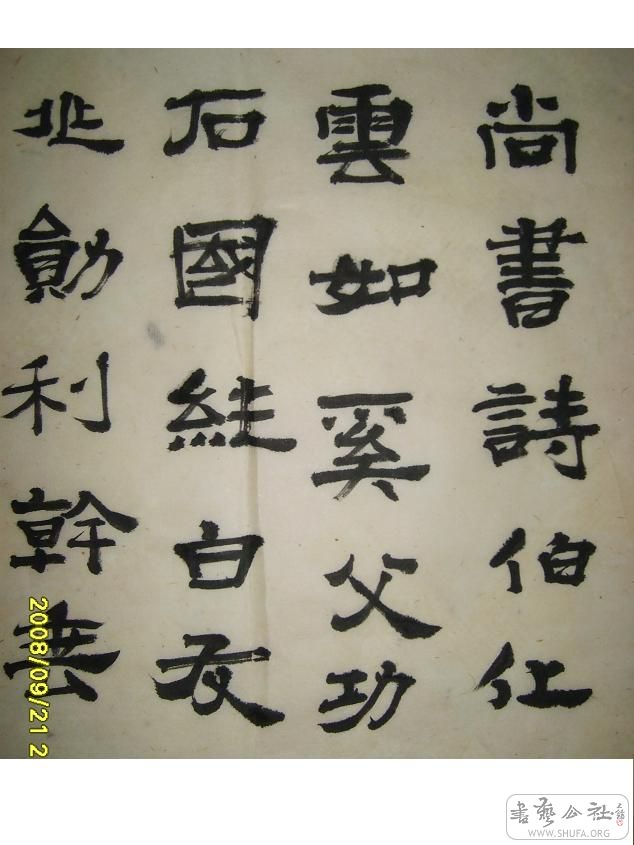 尚書詩伯仁
雲如奚父功
石國經白友
兆勛利幹
2008/09/21 2
書藝公社
WWW.SHUFA.ORG